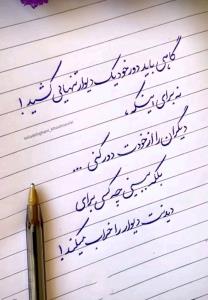 گاهی باید دور خود یک دیوار تنهایی کشید !
نه برای اینکه ،
دیگران را از خودت دور کنی ...
بلکه ببینی چه کسی برای
دیدنت دیوار را خراب میکند !